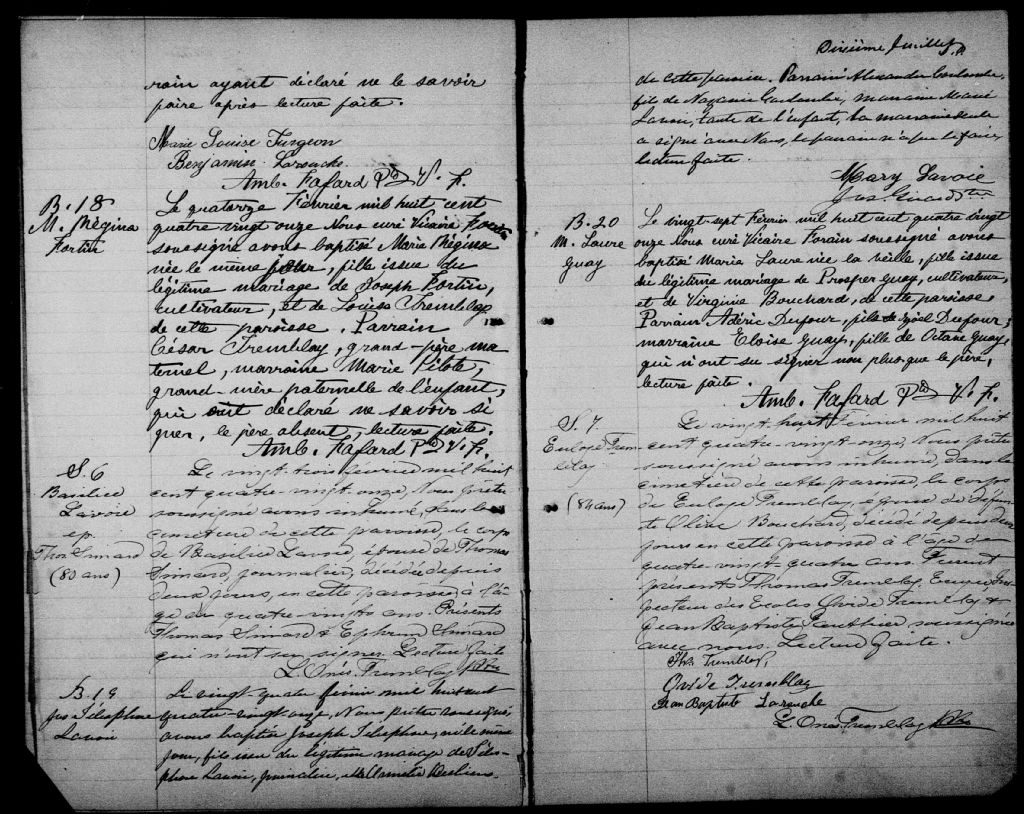 rain ayant déclaré ne le savoir
faire après lecture faite.
Marie Louise Turgeon
Benjamin Larouche
Amb. Fafard Ptre V. F.
B. 18
M. Régina
Fortin
Le quatorze Février mil huit cent
quatre vingt onze Nous curé Vicaire Forain
soussigné avons baptisé Marie Régina
née le même jour, fille issue du
légitime mariage de Joseph Fortin,
cultivateur, et de Louise Tremblay
de cette paroisse. Parrain
César Tremblay, grand-père ma
ternel, marraine Marie Pilote,
grand-mère paternelle de l'enfant,
qui ont déclaré ne savoir si
gner, le père absent, lecture faite.
Amb. Fafard Ptre V. F.
S. 6
Basilice
Lavoie
ép.
Thos Simard
(80 ans)
Le vingt trois février mil huit
cent quatre-vingt onze, Nous prêtre
soussigné avons inhumé, dans le
cimetière de cette paroisse, le corps
de Basilice Lavoie, épouse de Thomas
Simard, journalier, décédée depuis
deux jours, en cette paroisse à l'â-
ge de quatre-vingts ans. Présents
Thomas Simard & Ephrem Simard
qui n'ont su signer. Lecture faite
L. Onés. Tremblay Ptre
B. 19
Jos Télesphore
Lavoie
Le vingt quatre février mil huit cent
quatre-vingt onze, Nous prêtre soussigné,
avons baptisé Joseph Télesphore, né le même
jour, fils issu du légitime mariage de Téles-
phore Lavoie, journalier, et de
Dixième Juillet
de cette paroisse. Parrain Alexandre Coulombe,
fils de Nazaire Coulombe, marraine Marie
Lavoie, tante de l'enfant, la marraine seule
a signé avec Nous, le parrain n'a pu le faire,
lecture faite.
Mary Lavoie
Jos. Girard ptre
B. 20
M. Laure
Guay
Le vingt-sept Février mil huit cent quatre vingt
onze Nous curé Vicaire Forain soussigné avons
baptisé Maria Laure née la veille, fille issue
du légitime mariage de Prosper Guay, cultivateur,
et de Virginie Bouchard, de cette paroisse.
Parrain Adéric Dufour, fils de Joël Dufour,
marraine Eloise Guay, fille de Octave Guay,
qui n'ont su signer non plus que le père,
lecture faite.
Amb. Fafard Ptre V. F.
S. 7
Euloge Trem-
blay
(84 ans)
Le vingt huit Février mil huit
cent quatre-vingt-onze, Nous prêtre
soussigné avons inhumé, dans le
cimetière de cette paroisse, le corps
de Euloge Tremblay, époux de défun-
te Olive Bouchard, décédé depuis deux
jours en cette paroisse à l'âge de
quatre-vingt-quatre ans. Furent
présents Thomas Tremblay, Ecuyer, Ins-
pecteur des Ecoles Ovide Tremblay &
Jean Baptiste Gauthier, soussignés
avec nous. Lecture faite.
Ths Tremblay,
Ovide Tremblay
Jean Baptiste Larouche
L. Onés. Tremblay Ptre